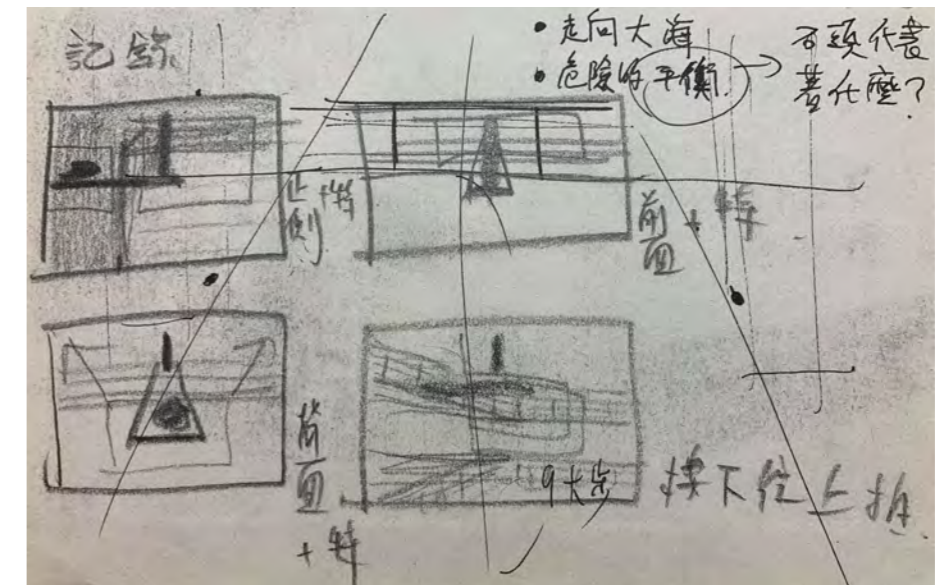 記錄
• 走向大海
• 危險的平衡
石頭代表
著什麼?
側 +特
前面 + 特
前面
+ 特
樓下往上拍